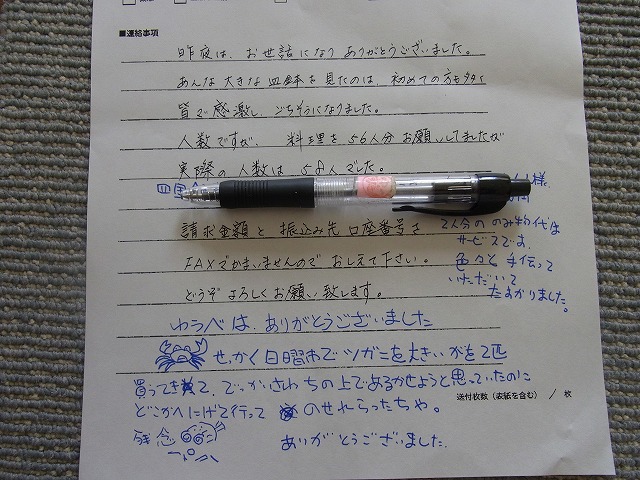 ■連絡事項
昨夜は、お世話になり ありがとうございました。
あんな大きな皿鉢を見たのは、初めての方も多く
皆で感激し、ごちそうになりました。
人数ですが、料理を56人分お願いしてましたが
実際の人数は58人でした。
四国
様
請求金額と 振込み先口座番号を
FAXでかまいませんので おしえて下さい。
どうぞ よろしくお願い致します。
2人分の のみ物代は
サービスです。
色々と 手伝って
いただいて
たすかりました。
ゆうべは、ありがとうございました
せっかく日曜市でツガニを大きいがを2匹
買ってきて、でっかさわちの上であるかせようと思っていたのに
どこかへにげて行って のせれらったちゃ。
送付枚数(表紙を含む) / 枚
残念
ありがとうございました。